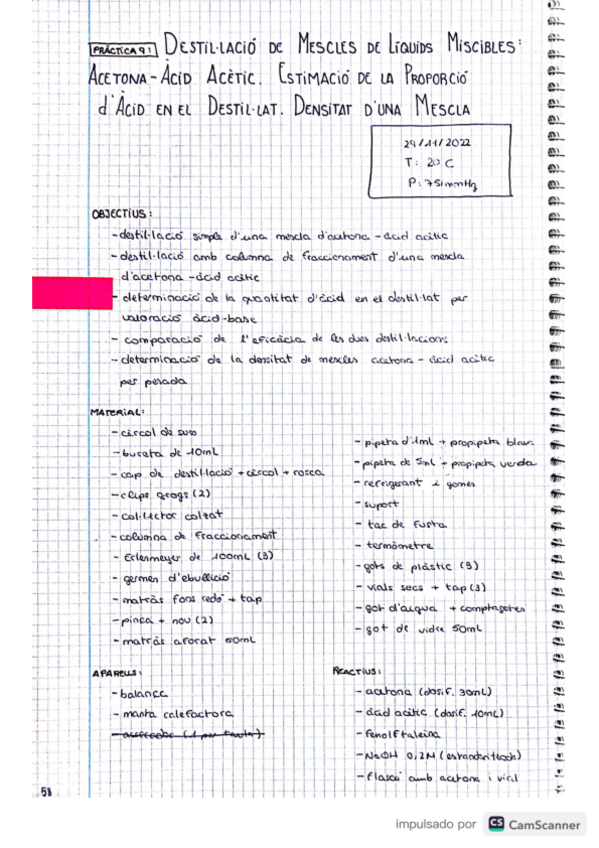 PRÀCTICA 9: DESTIL·LACIÓ DE MESCLES DE LÍQUIDS MISCIBLES:
ACETONA-ÀCID ACÈTIC. ESTIMACIÓ DE LA PROPORCIÓ
d'ÀCID EN EL DESTIL·LAT. DENSITAT D'UNA MESCLA
29/11/2022
T: 20 C
P: 751mmHg
OBJECTIUS:
-destil·lació simple d'una mescla d'acetona-àcid acètic
-destil·lació amb columna de fraccionament d'una mescla
d'acetona-àcid acètic
-determinació de la quantitat d'àcid en el destil·lat per
valoració àcid-base
-comparació de l'eficàcia de les dues destil·lacions
-determinació de la densitat de mescles acetona-àcid acètic
per pesada
MATERIAL:
-cèrcol de suro
-bureta de 10mL
-cap de destil·lació+cèrcol+rosca
-clips grogs (2)
-col·lector colzat
-columna de fraccionament
-Erlenmeyer de 100mL (3)
-germen d'ebullició
-matràs fons rodó + tap
-pinça + nou (2)
-matràs aforat 50mL
-pipeta d'1mL + propipeta blava
-pipeta de 5mL + propipeta verda
-refrigerant i gomes
-suport
-tac de fusta
-termòmetre
-gots de plàstic (3)
-vials secs + tap (3)
-got d'aigua + comptagotes
-got de vidre 50mL
APARELLS:
-balança
-manta calefactora
REACTIUS:
-acetona (dosif. 30mL)
-àcid acètic (dosif. 10mL)
-fenolftaleïna
-NaOH 0,2M (estandarditzada)
-flascó amb acetona i vial
58
impulsado por CS CamScanner